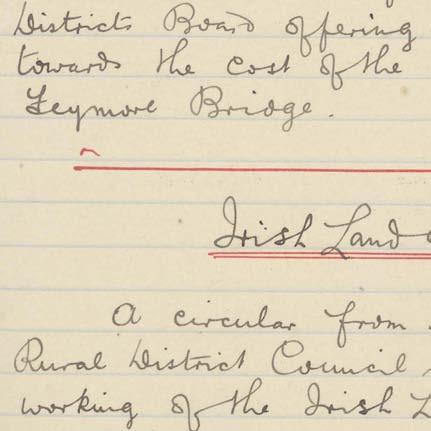 Districts Board offering
towards the cost of the
Leymore Bridge.
Irish Land
A circular from
Rural District Council
working of the Irish L